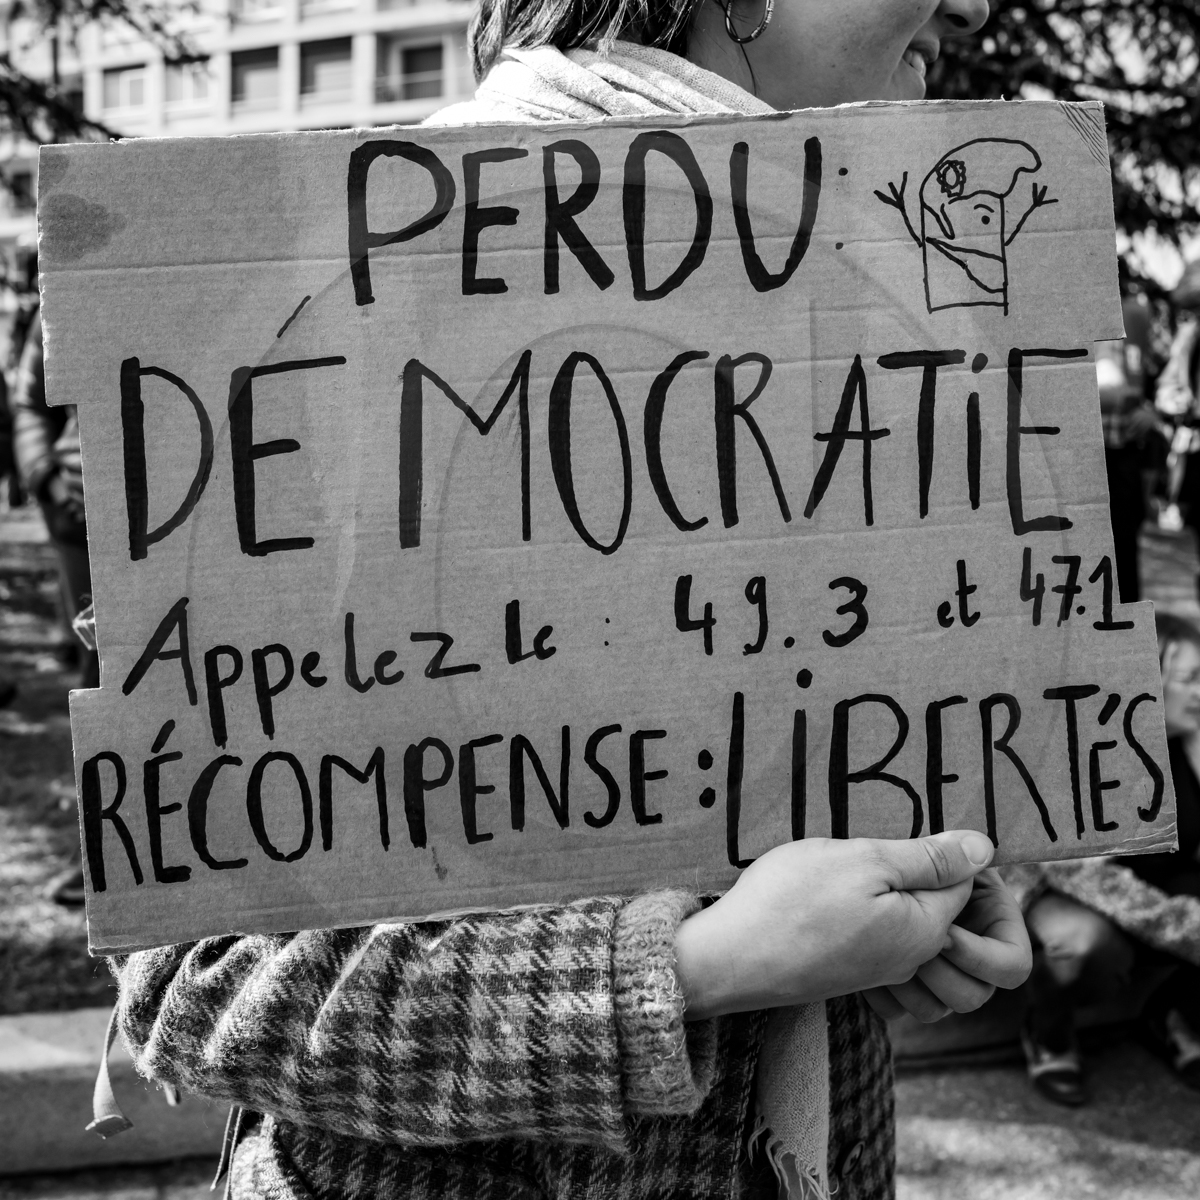 PERDU:
DÉMOCRATiE
Appelez le : 49.3 et 47.1
RÉCOMPENSE : LiBERTÉS